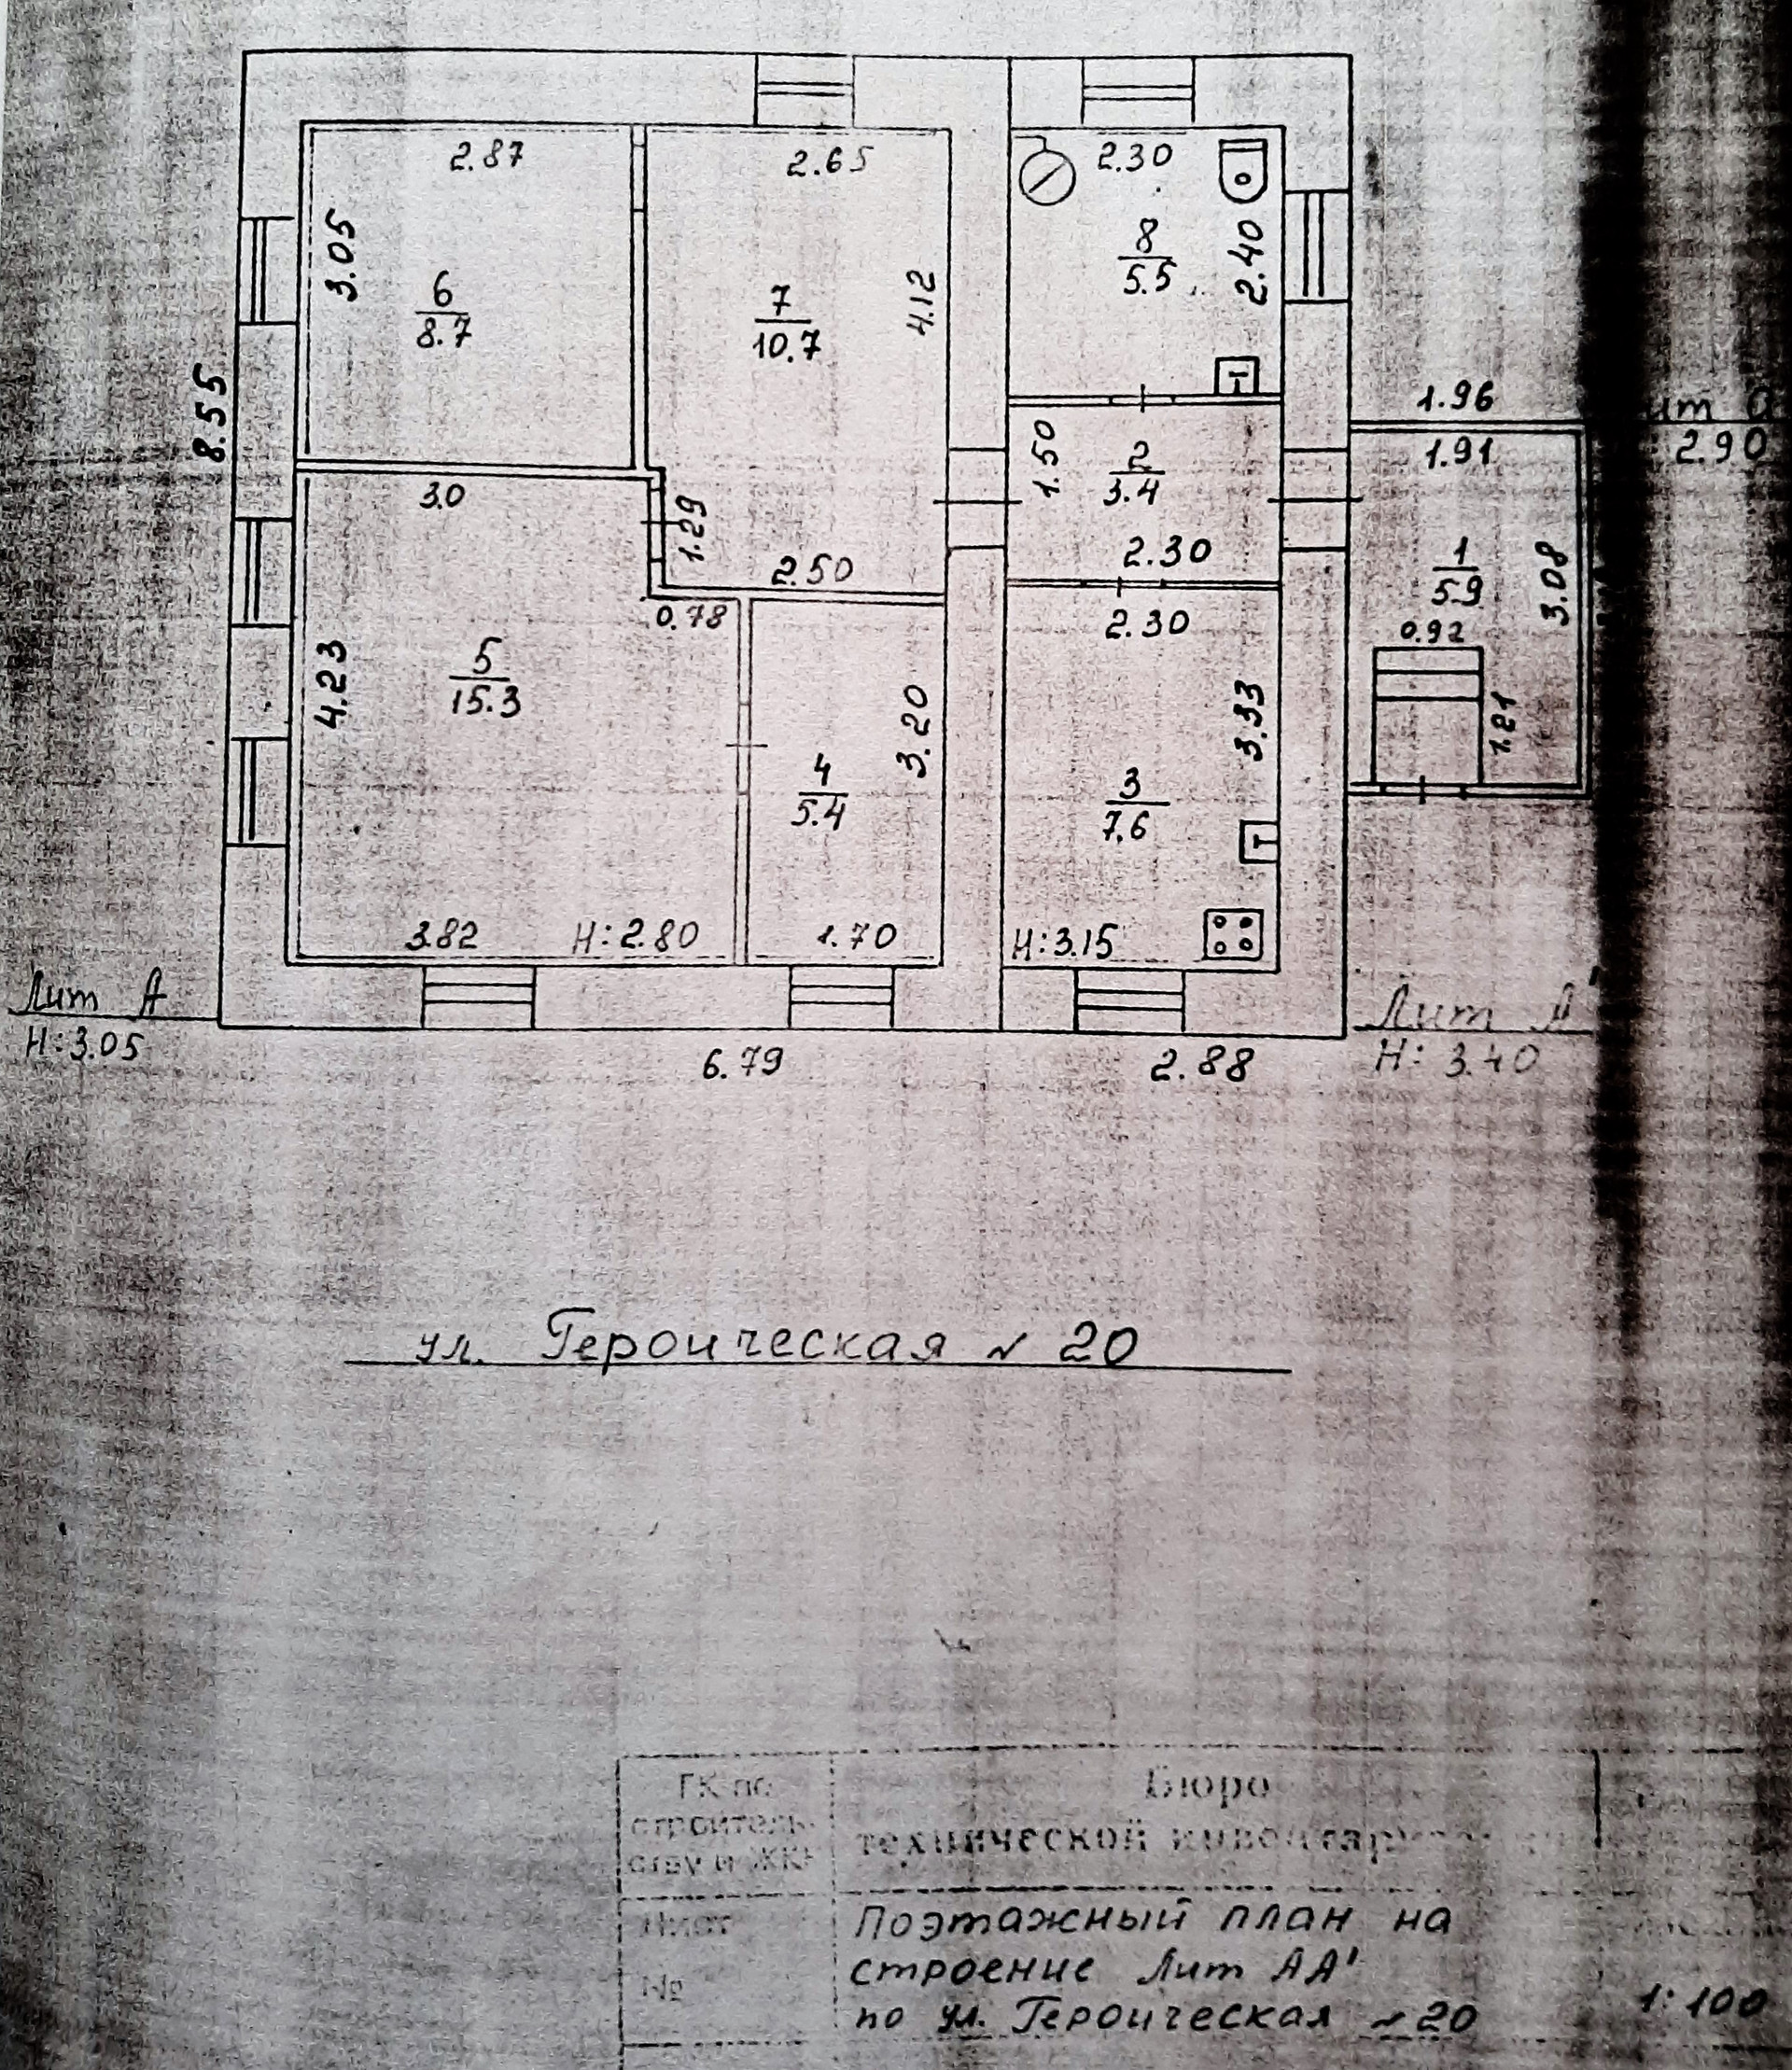 2.87
2.65
2.30
3.05
6
8.7
7
10.7
4.12
8
5.5
2.40
8.55
1.96
1.91
2.90
3.0
1.29
2.50
1.50
2
3.4
2.30
1
5.9
3.08
0.92
1.21
0.78
2.30
4.23
5
15.3
4
5.4
3.20
3
7.6
3.33
3.82
Н:2.80
1.70
Н:3.15
Лит А
Н:3.05
Лит А'
Н: 3.40
6.79
2.88
ул. Героическая № 20
ГК по
строитель-
ству и ЖКХ
Бюро
технической
Лист
№
Поэтажный план на
строение Лит АА'
по ул. Героическая № 20
1:100